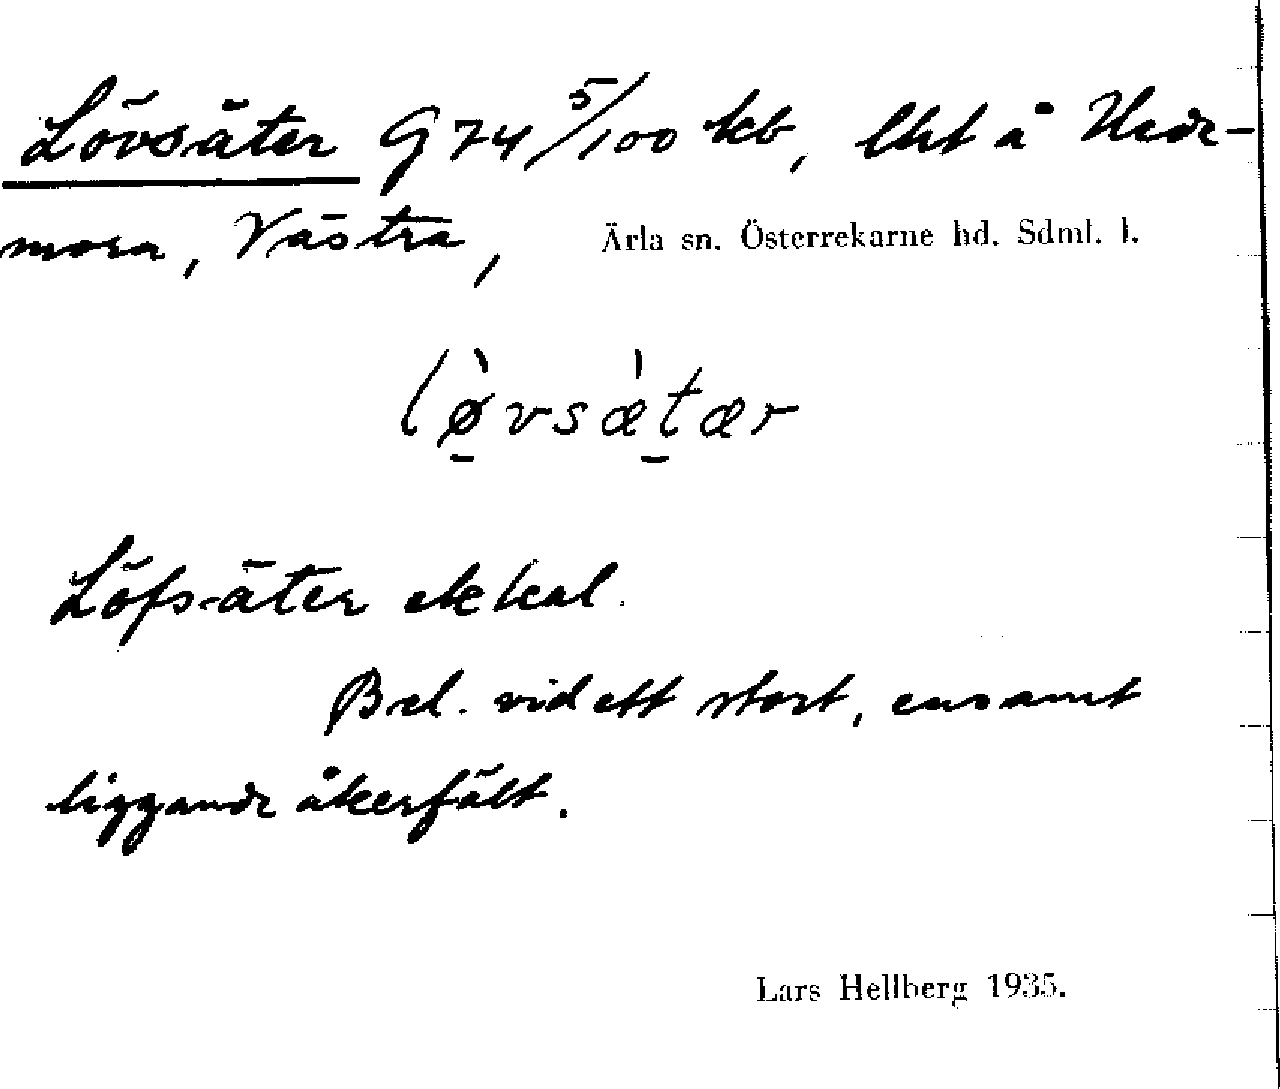 Lövsäter G 74 5/100 kb, lht å Hede-
mora, Västra, Ärla sn. Österrekarne hd. Sdml. l.
lø̠̀vsæ̀t̠ær
Löfsäter ekkal.
Bel. vid ett stort, ensamt
liggande åkerfält.
Lars Hellberg 1935.